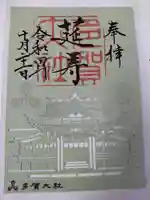 奉拝
多賀大社
莚寿
令和四年
十月二十二日
多賀大社